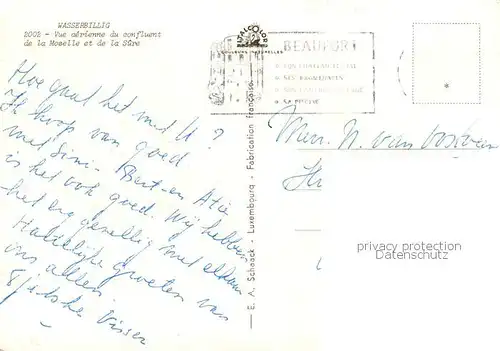 WASSERBILLIG
2002 - Vue aérienne du confluent
de la Moselle et de la Sûre
Hoe gaat het met U?
Ik hoop van goed
met Sini - Bert en Atie
is het ook goed. Wij hebben
het erg gezellig met elkaar
Hartelijke groeten van
ons allen.
Visser
REALCOLOR
BEAUFORT
E. A. Schaack - Luxembourg - Fabrication française
Mevr. van
privacy protection
Datenschutz